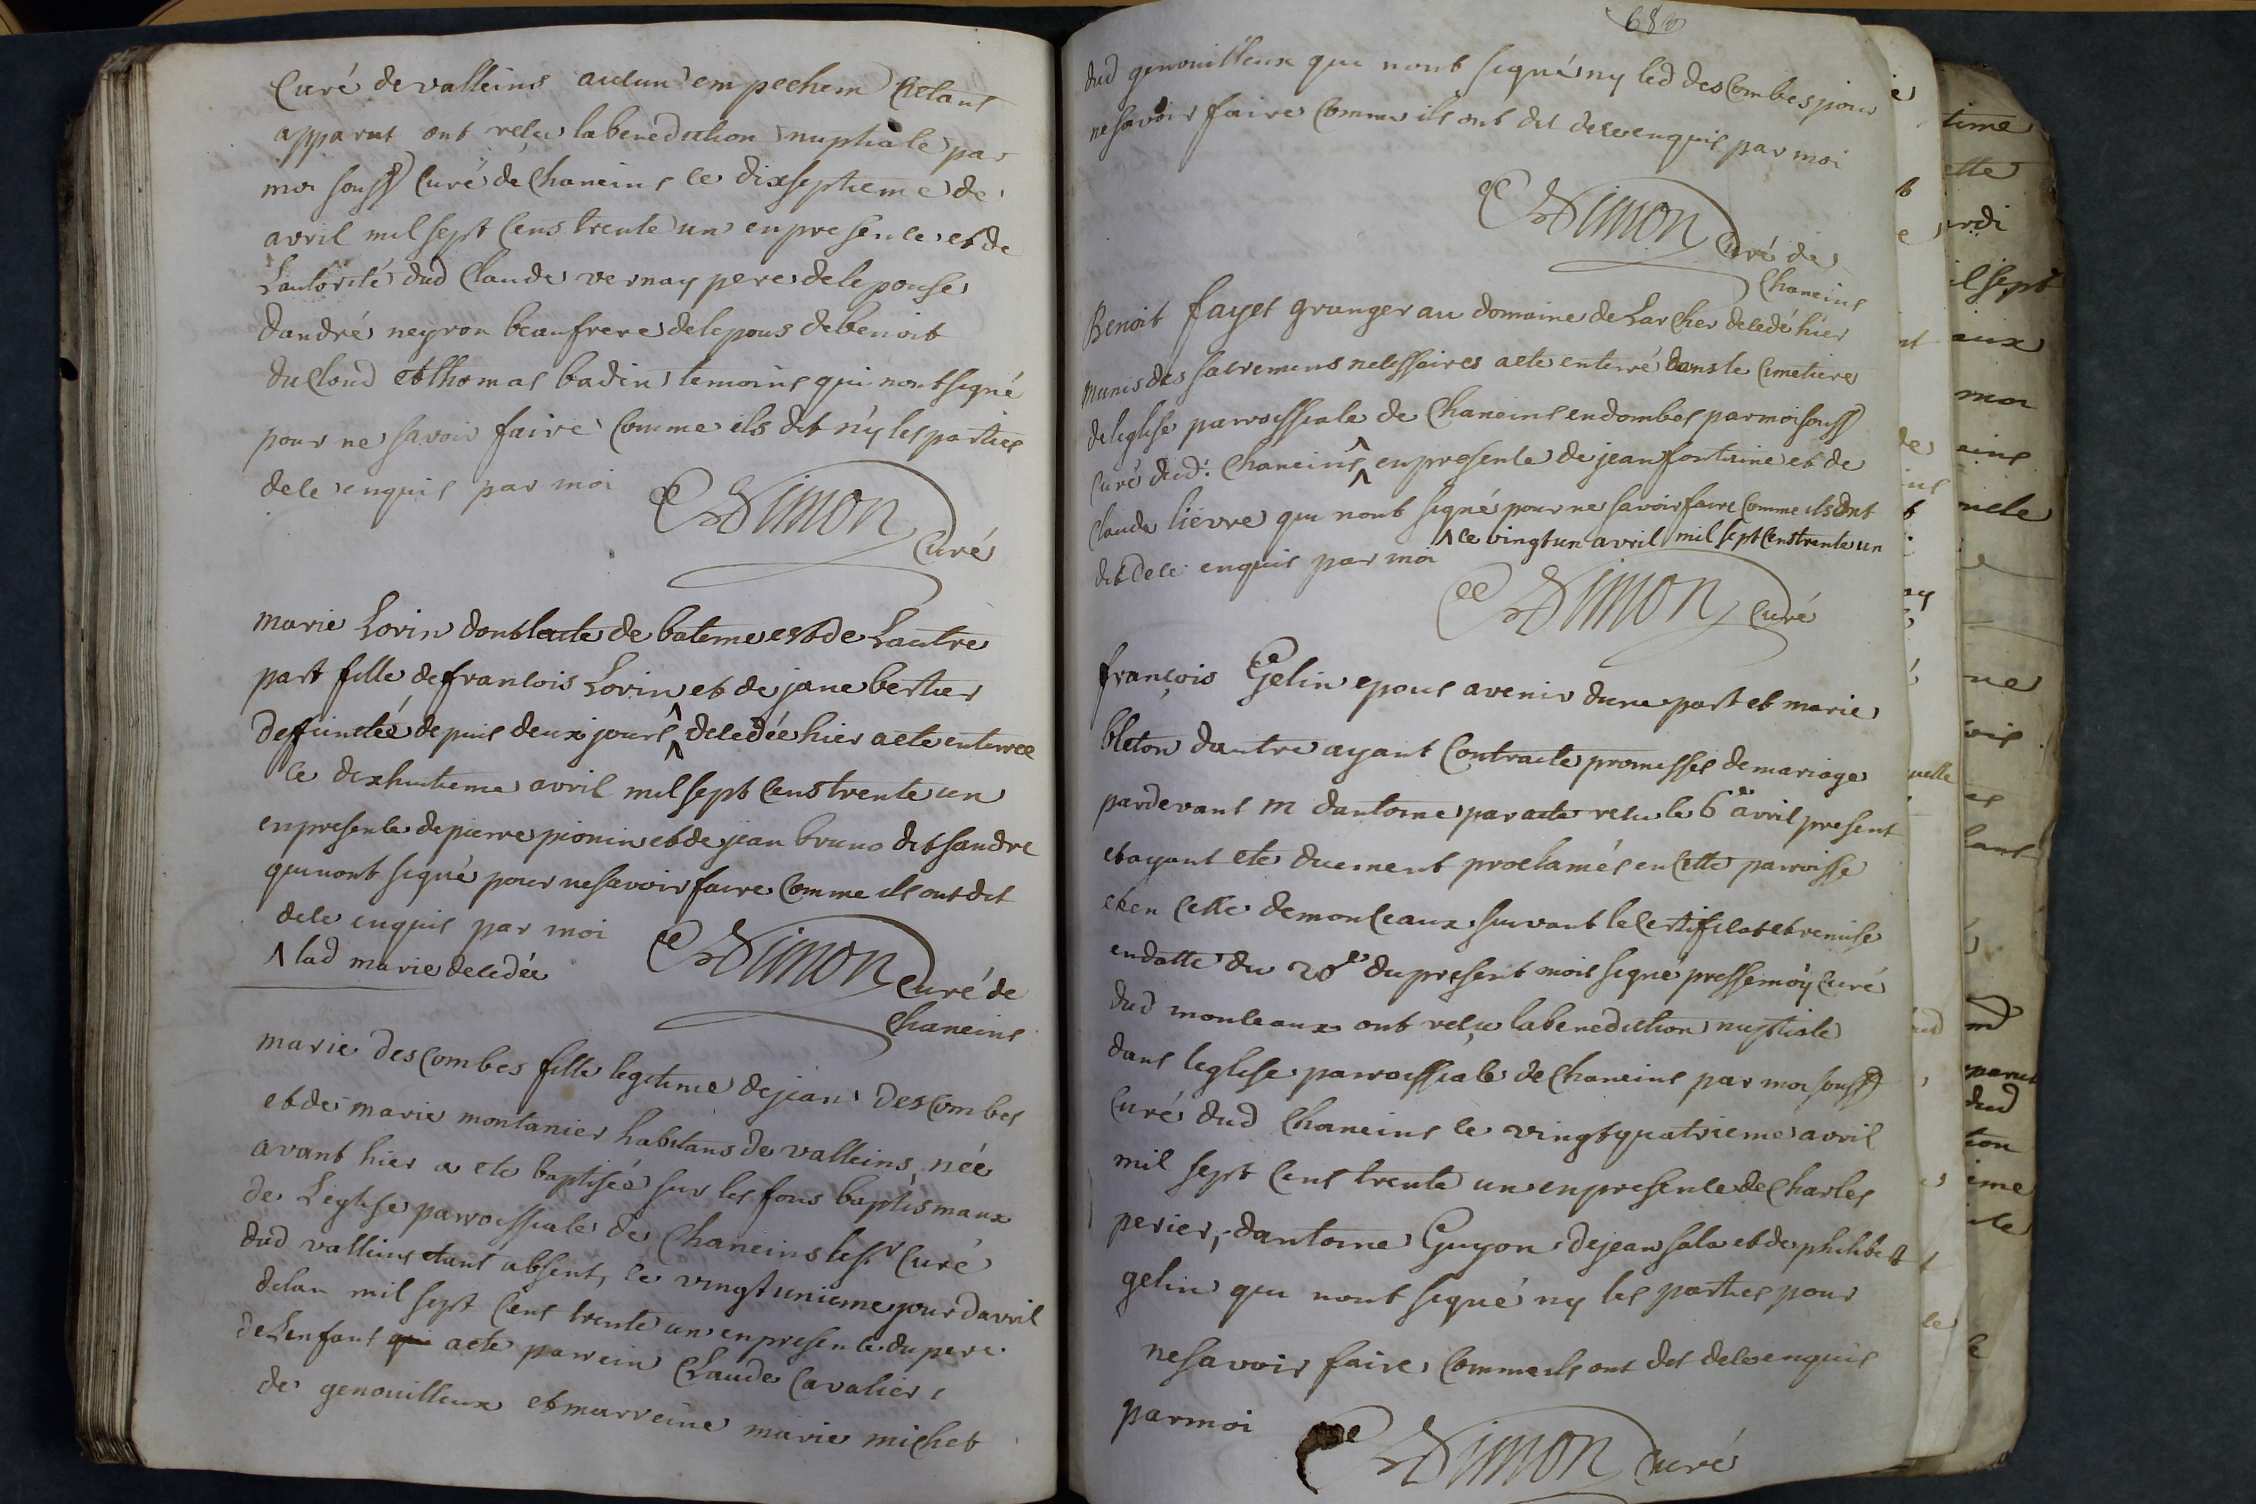 Curé de valleins aucun empechem C etant
apparut ont reçu la benediction nuptiale par
moi souss Curé de Chaneins ce dixseptieme de
avril mil sept Cens trente un en presence et de
Lautorité dud Claude vernay pere de le pouse
dandré neyron beaufrere de lepous de benoit
du Cloud et thomas badin temoins qui nont signé
pour ne savoir faire Comme ils dit n'y les parties
de ce enquis par moi
Simon
Curé
marie Lorin dont lacte de bateme est de Lautre
part fille de francois Lorin et de jane bertier
deffunctée depuis deux jours ^ decedée hier a ete enterree
ce dixhuitieme avril mil sept Cens trente un
en presence de pierre pionin et de jean bruno dit sandre
qui nont signé pour ne savoir faire Comme ils ont dit
de ce enquis par moi
^ lad marie decedée
Simon
Curé de
Chaneins
marie des Combes fille legitime de jean des Combes
et de marie montanier habitans de valleins née
avant hier a ete baptisée sur les fons baptismaux
de Leglise parroissiale de Chaneins le sr Curé
dud valleins etant absent, ce vingt unieme jour davril
delan mil sept Cens trente un en presence du pere
de Lenfant qui a ete parrein Claude Cavalier
de genouilleux et marreine marie michet
68
dud genouilleux qui nont signé ny led des Combes pour
ne savoir faire Comme ils ont dit de ce enquis par moi
Simon
Curé de
Chaneins
Benoit fayet granger au domaine de Larcher decedé hier
munis des sacremens necessaires a ete enterré dans le Cimetiere
de leglise parroissiale de Chaneins en dombes par moi souss
Curé dud. Chaneins ^ en presence de jean fontaine et de
Claude lievre qui nont signé pour ne savoir faire Comme ils ont
dit de ce enquis par moi ^ ce vingt un avril mil sept Cens trente un
Simon
Curé
françois Gelin epous avenir dune part et marie
bleton dautre ayant Contracte promesses de mariage
pardevant m dantoine par acte recu le 6e avril present
et ayant ete duement proclamés en Cette parroisse
et en Celle de monceaux suivant le Certificat et remise
en datte du 20e du present mois signé pressemoy Curé
dud monceaux ont reçu la benediction nuptiale
dans leglise parroissiale de Chaneins par moi souss
Curé dud Chaneins le vingt quatrieme avril
mil sept Cens trente un en presence de Charles
perier, dantoine Guyon de jean sala et de philibert
gelin qui nont signé ny les parties pour
ne savoir faire Comme ils ont dit de ce enquis
par moi
Simon Curé